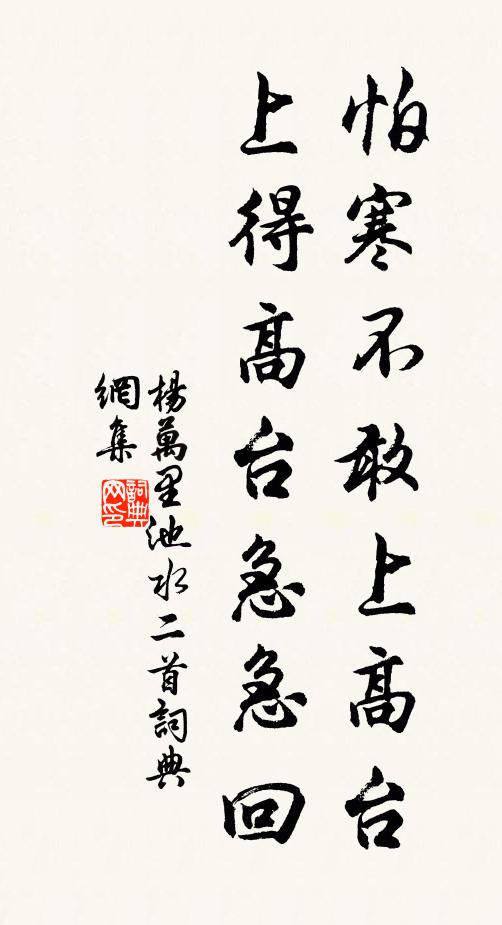 怕寒不敢上高台
上得高台急急回
楊萬里池水二首詞典
網集
詞典
网印